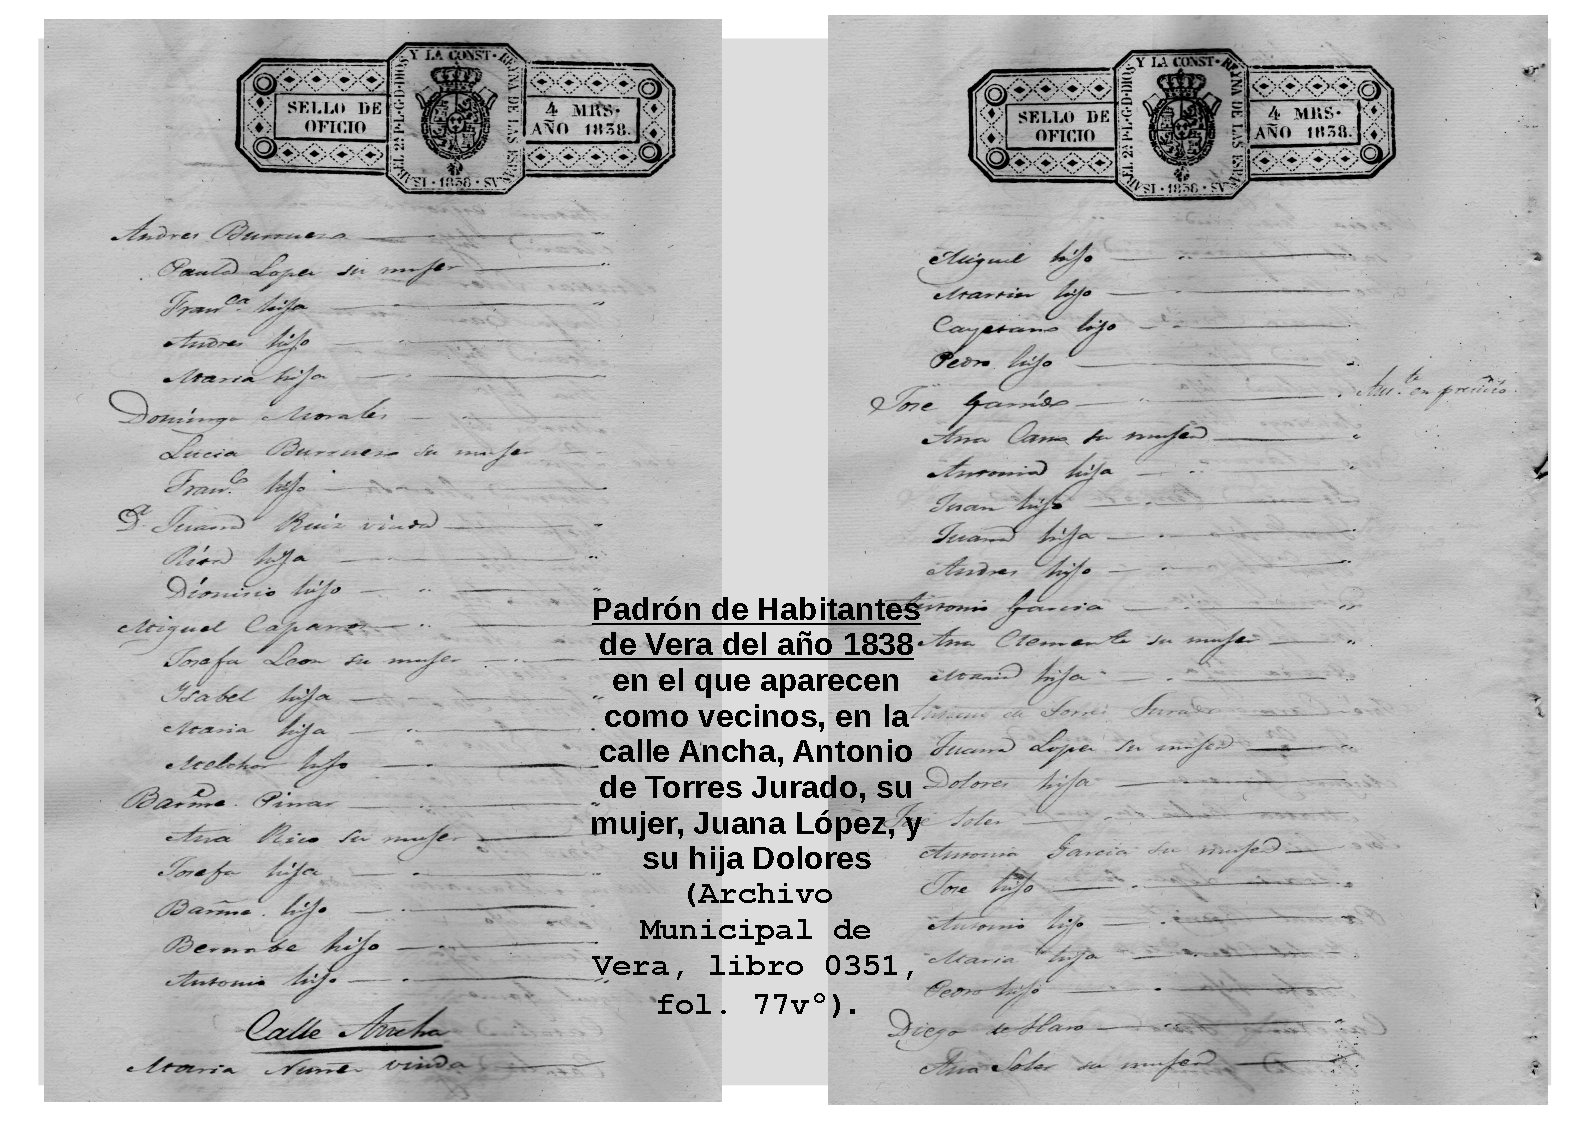 SELLO DE OFICIO
ISABEL 2ª P.L.G.D.DIOS Y LA CONST. REYNA DE LAS ESPAÑAS · 1838 ·
4 MRS.
AÑO 1838.
Andres Burruezo
Paula Lopez su muger
Franca hija
Andres hijo
Maria hija
Domingo Morales
Lucia Burruezo su muger
Franco hijo
Da Juana Ruiz viuda
hija
Dionisio hijo
Miguel Caparros
Josefa Leon su muger
Ysabel hija
Maria hija
Melchor hijo
Barme. Pinar
Ana Rico su muger
Josefa hija
Barme. hijo
Bernabe hijo
Antonio hijo
Calle Ancha
Maria Nuñez viuda
SELLO DE OFICIO
ISABEL 2ª P.L.G.D.DIOS Y LA CONST. REYNA DE LAS ESPAÑAS · 1838 ·
4 MRS.
AÑO 1838.
Miguel hijo
hijo
Cayetano hijo
Pedro hijo
Jose Garrido
Ana Cano su muger
Antonia hija
Juan hijo
Juana hija
Andres hijo
Antonio Garcia
Ana Clemente su muger
hija
de Torres Jurado
Juana Lopez su muger
Dolores hija
Jose Soler
Antonia Garcia su muger
Jose hijo
Antonio hijo
Maria hija
Pedro hijo
Diego de Haro
Ana Soler su muger
Padrón de Habitantes
de Vera del año 1838
en el que aparecen
como vecinos, en la
calle Ancha, Antonio
de Torres Jurado, su
mujer, Juana López, y
su hija Dolores
(Archivo
Municipal de
Vera, libro 0351,
fol. 77vº).